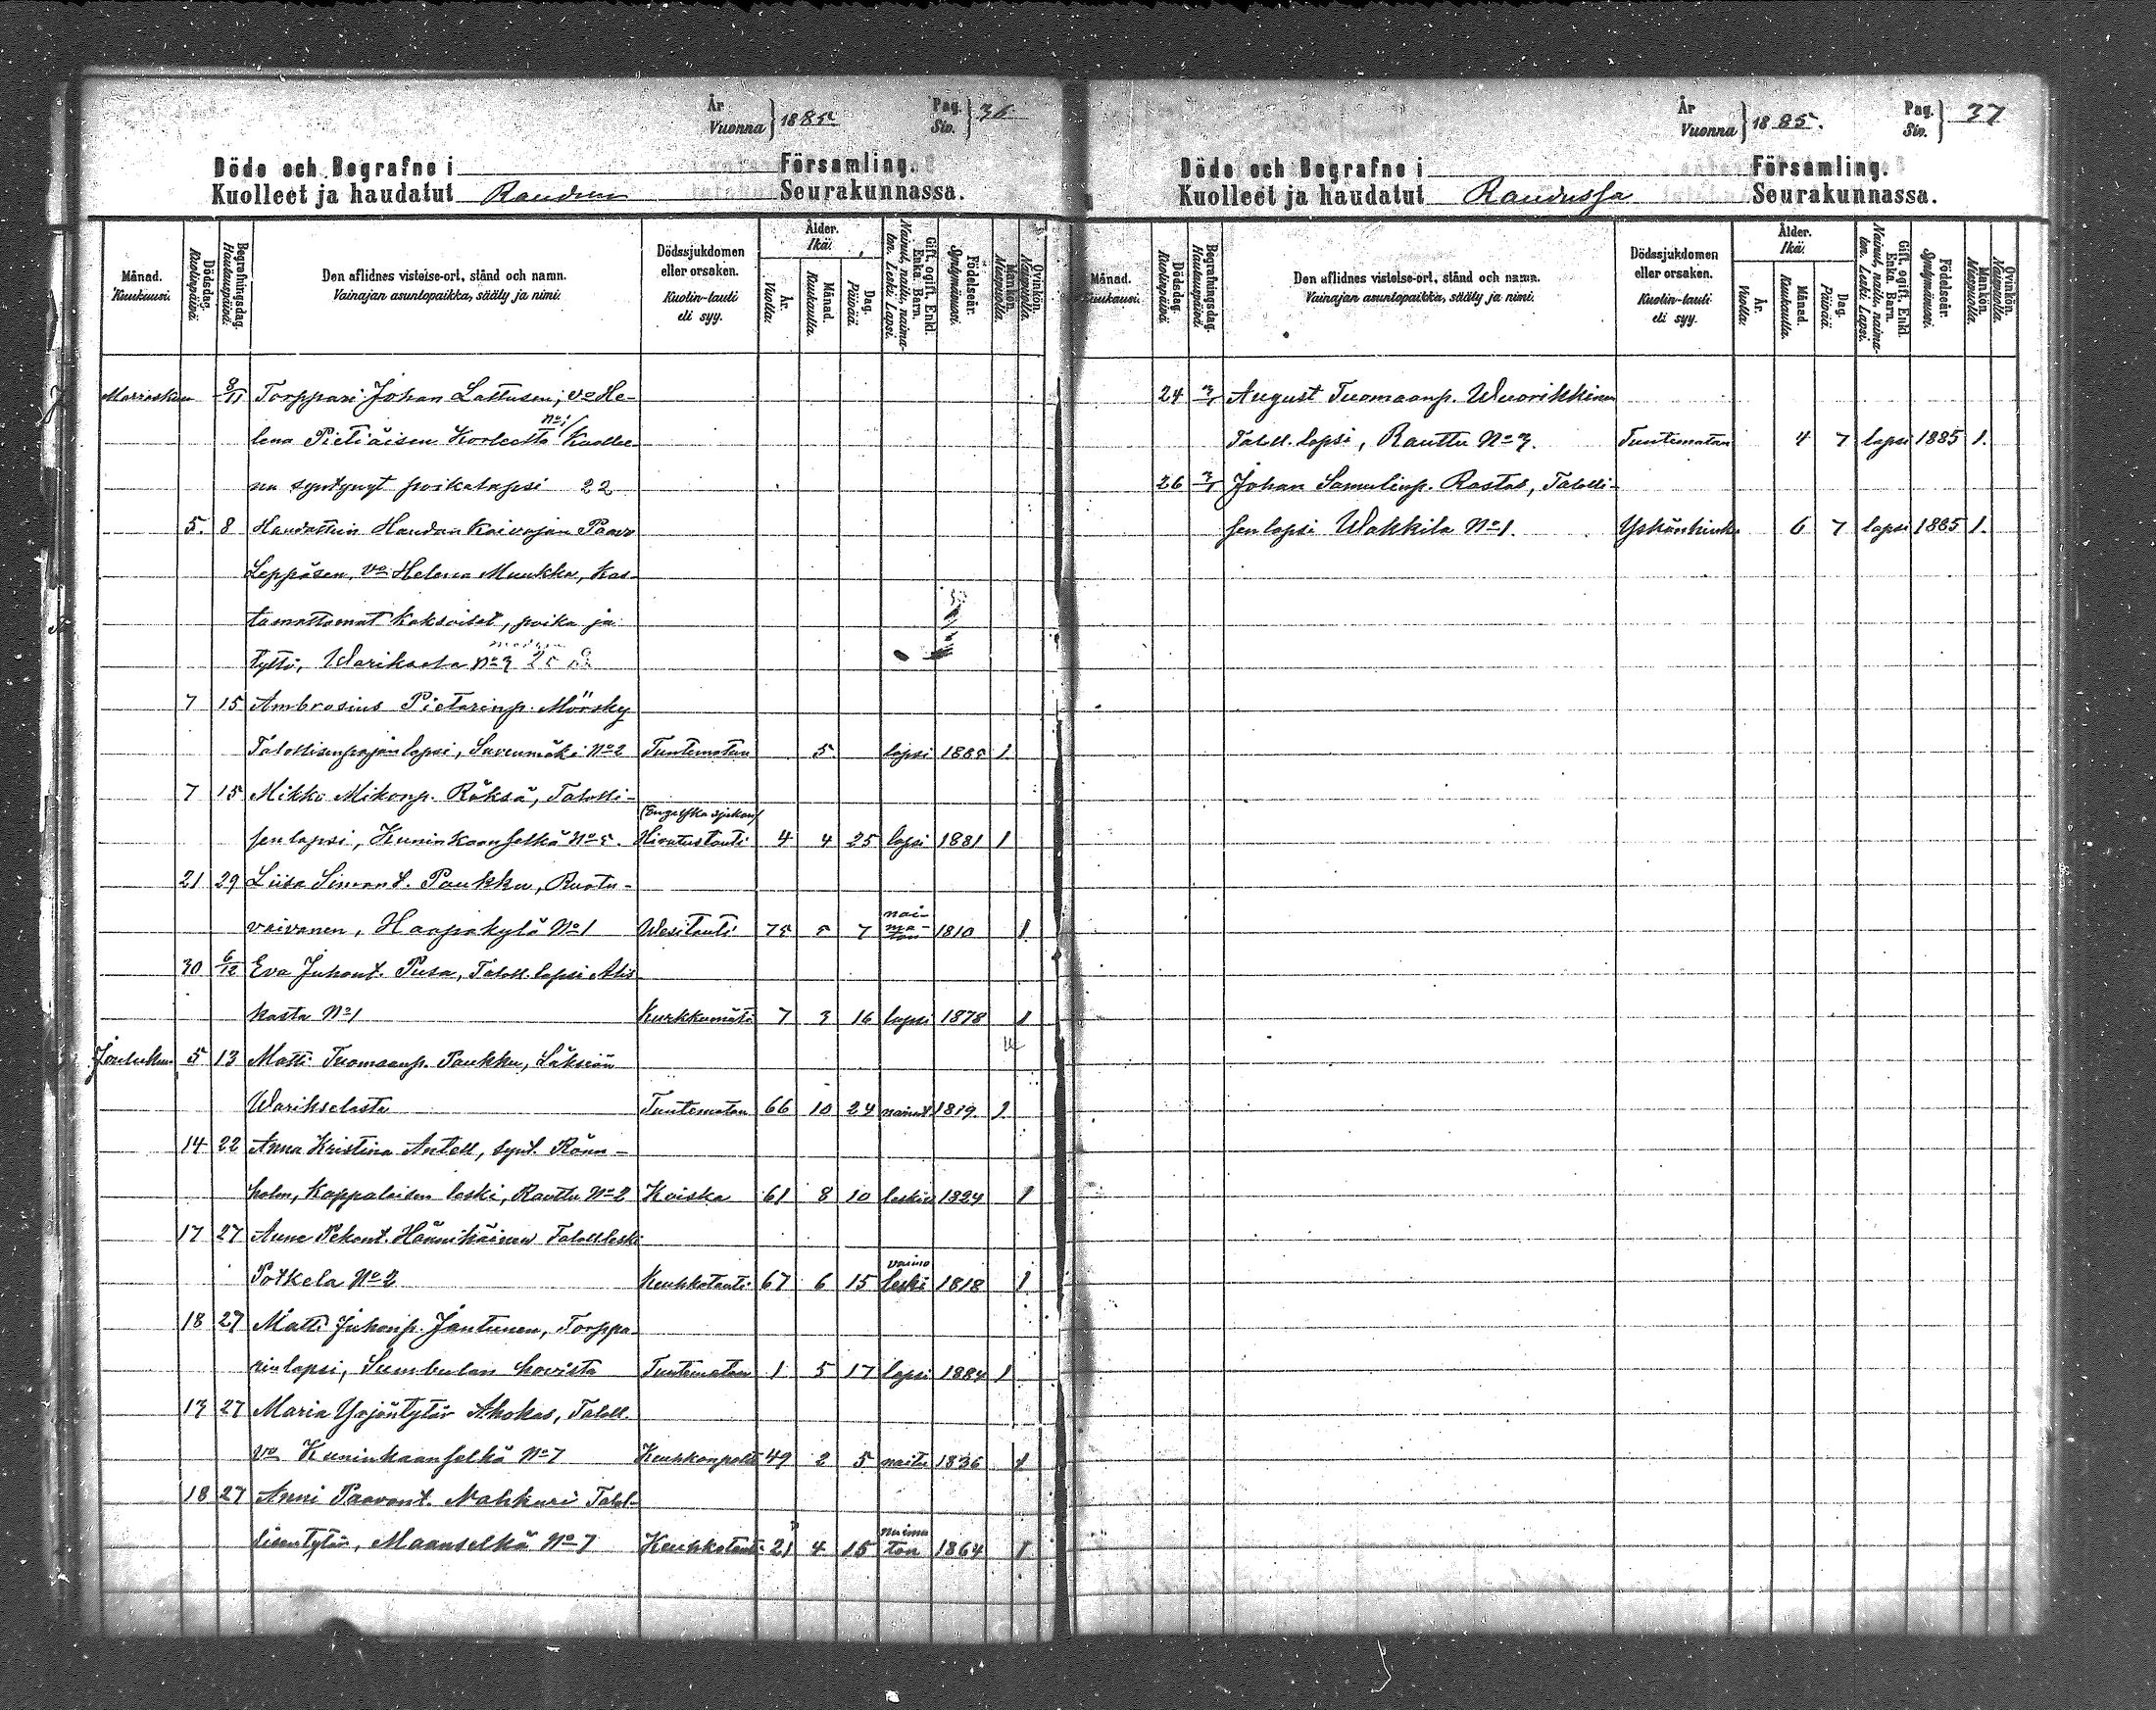 År
Vuonna } 1885
Pag.
Siv. } 36
Döde och Begrafne i Församling.
Kuolleet ja haudatut Raudun Seurakunnassa.
Månad.
Kuukausi.
Dödsdag.
Kuolinpäivä.
Begrafningsdag.
Hautauspäivä.
Den aflidnes vistelse-ort, stånd och namn.
Vainajan asuntopaikka, sääty ja nimi.
Dödssjukdomen
eller orsaken.
Kuolin-tauti
eli syy.
Ålder.
Ikä.
År.
Vuotta.
Månad.
Kuukautta.
Dag.
Päivää.
Gift, ogift, Enkl.
Enka, Barn.
Nainut, naitu, naima-
ton. Leski. Lapsi.
Födelseår.
Syntymävuosi.
Mankön.
Miespuolia.
Qvinkön.
Naispuolia.
Marraskuu 8/11 Torppari Johan Lattusen, vo He-
lena Pietiäisen Korleesta No 1 Kuollee-
na syntynyt poikalapsi 22
5. 8 Haudattiin Haudan Kaivajan Paavo
Leppäsen, vo Helena Muukka, Kas-
tamattomat Kaksoiset, poika ja
tyttö, Warikselta No 3
7 15 Ambrosius Pietarinp. Mörsky
Talollisenpojan lapsi, Savenmäki No 2 Tuntematon 5. lapsi 1885 1.
7 15 Mikko Mikonp. Räksä, Talolli-
sen lapsi, Kuninkaanselkä No 5. (Engelska sjukan) Hivutustauti 4 4 25 lapsi 1881 1
21 29 Liisa Simont. Paukku, Ruotu-
vaivanen, Haapakylä No 1 Wesitauti 75 5 7 naimaton 1810 1
30 6/12 Eva Juhont. Pusa, Taloll. lapsi Alis
kasta No 1 Kurkkumätä 7 3 16 lapsi 1878 1
Jouluku 5 13 Matti Tuomaanp. Paukku, Läksiän
Warikselasta Tuntematon 66 10 24 nainut 1819. 1.
14 22 Anna Kristina Antell, synt. Rönn-
holm, Kappalaisen leski, Rauttu No 2 Koiska 61 8 10 leskivo 1824 1
17 27 Anna Pekant. Hännikäinen Taloll. leski
Potkela No 2 Keuhkotauti 67 6 15 vaimo leski 1818 1
18 27 Matti Juhonp. Jantunen, Torppa-
rin lapsi, Sumbulan hovista Tuntematon 1 5 17 lapsi 1884 1
13 27 Maria Yrjöntytär Ahokas, Taloll.
vo Kuninkaanselkä No 7 Keuhkonpolt 49 2 5 naitu 1836 1
18 27 Anni Paavont. Nahkuri Talol-
lisen tytär, Maanselkä No 7 Keuhkotauti 21 4 15 naimaton 1864 1
År
Vuonna } 1885.
Pag.
Siv. } 37
Döde och Begrafne i Församling.
Kuolleet ja haudatut Raudussa Seurakunnassa.
Månad.
Kuukausi.
Dödsdag.
Kuolinpäivä.
Begrafningsdag.
Hautauspäivä.
Den aflidnes vistelse-ort, stånd och namn.
Vainajan asuntopaikka, sääty ja nimi.
Dödssjukdomen
eller orsaken.
Kuolin-tauti
eli syy.
Ålder.
Ikä.
År.
Vuotta.
Månad.
Kuukautta.
Dag.
Päivää.
Gift, ogift, Enkl.
Enka, Barn.
Nainut, naitu, naima-
ton. Leski. Lapsi.
Födelseår.
Syntymävuosi.
Mankön.
Miespuolia.
Qvinkön.
Naispuolia.
24 3/1 August Tuomaanp. Wuorikkinen
Taloll. lapsi, Rauttu No 3. Tuntematon 4 7 lapsi 1885 1.
26 3/1 Johan Samulinp. Rastas, Talolli-
sen lapsi Wakkila No 1. Yskänhinku 6 7 lapsi 1885 1.